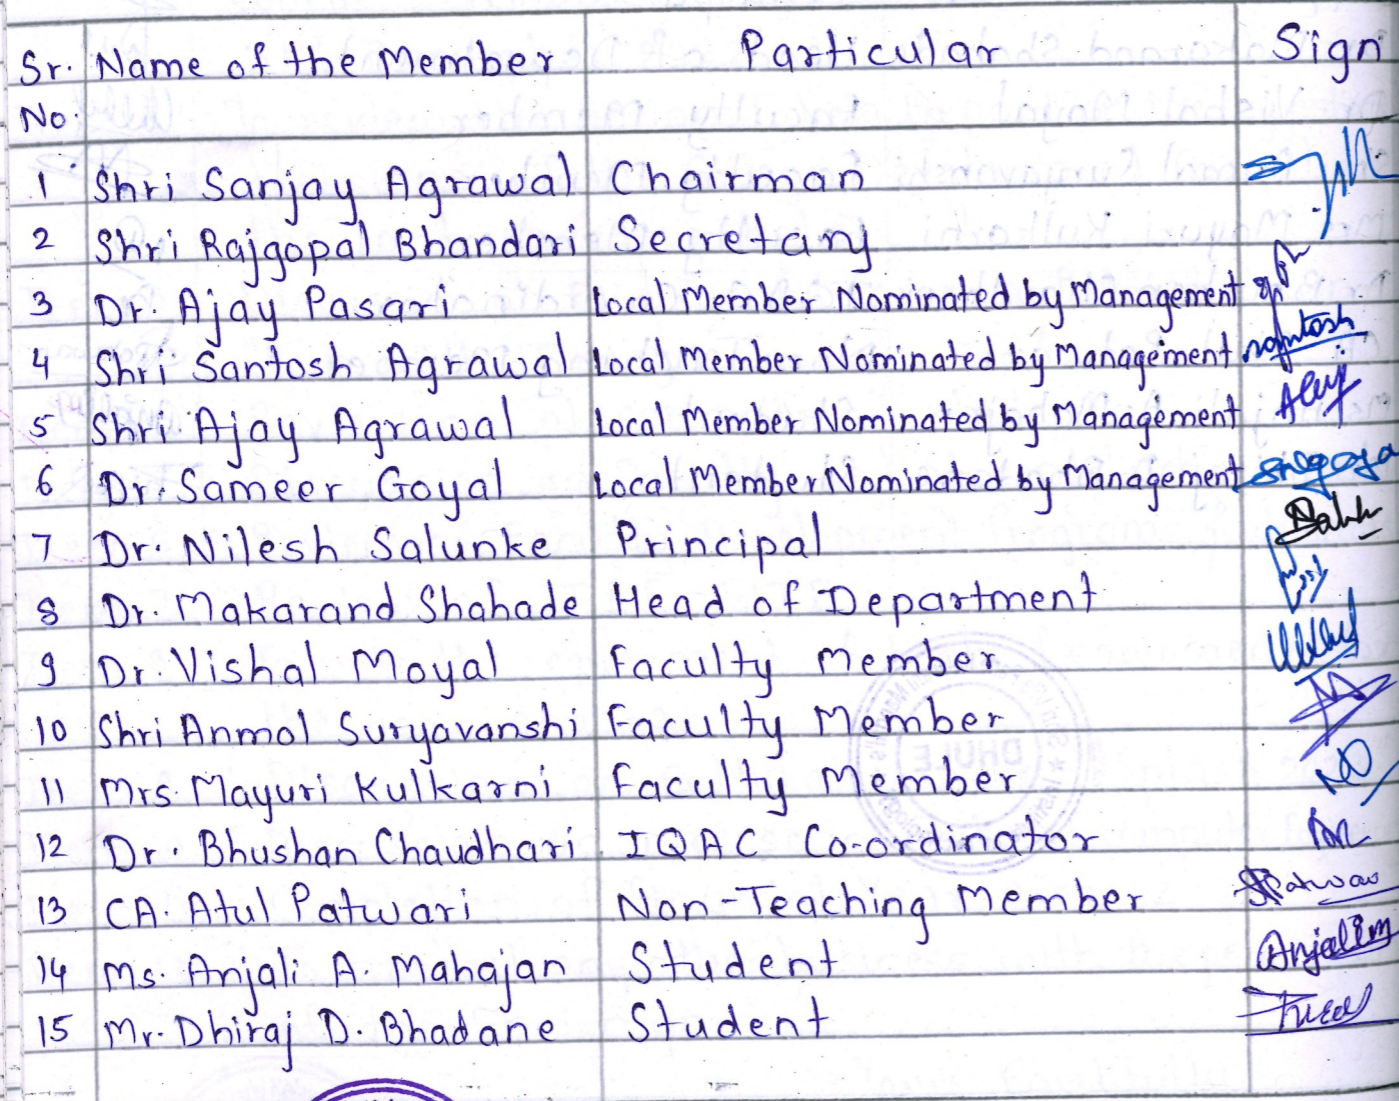 Sr. Name of the Member Particular Sign
No.
1 Shri Sanjay Agrawal Chairman
2 Shri Rajgopal Bhandari Secretary
3 Dr. Ajay Pasari Local Member Nominated by Management
4 Shri Santosh Agrawal Local Member Nominated by Management Santosh
5 Shri Ajay Agrawal Local Member Nominated by Management
6 Dr. Sameer Goyal Local Member Nominated by Management
7 Dr. Nilesh Salunke Principal
8 Dr. Makarand Shahade Head of Department
9 Dr. Vishal Moyal Faculty Member
10 Shri Anmol Suryavanshi Faculty Member
11 Mrs. Mayuri Kulkarni Faculty Member
12 Dr. Bhushan Chaudhari IQAC Co-ordinator
13 CA. Atul Patwari Non-Teaching Member
14 Ms. Anjali A. Mahajan Student Anjalim
15 Mr. Dhiraj D. Bhadane Student